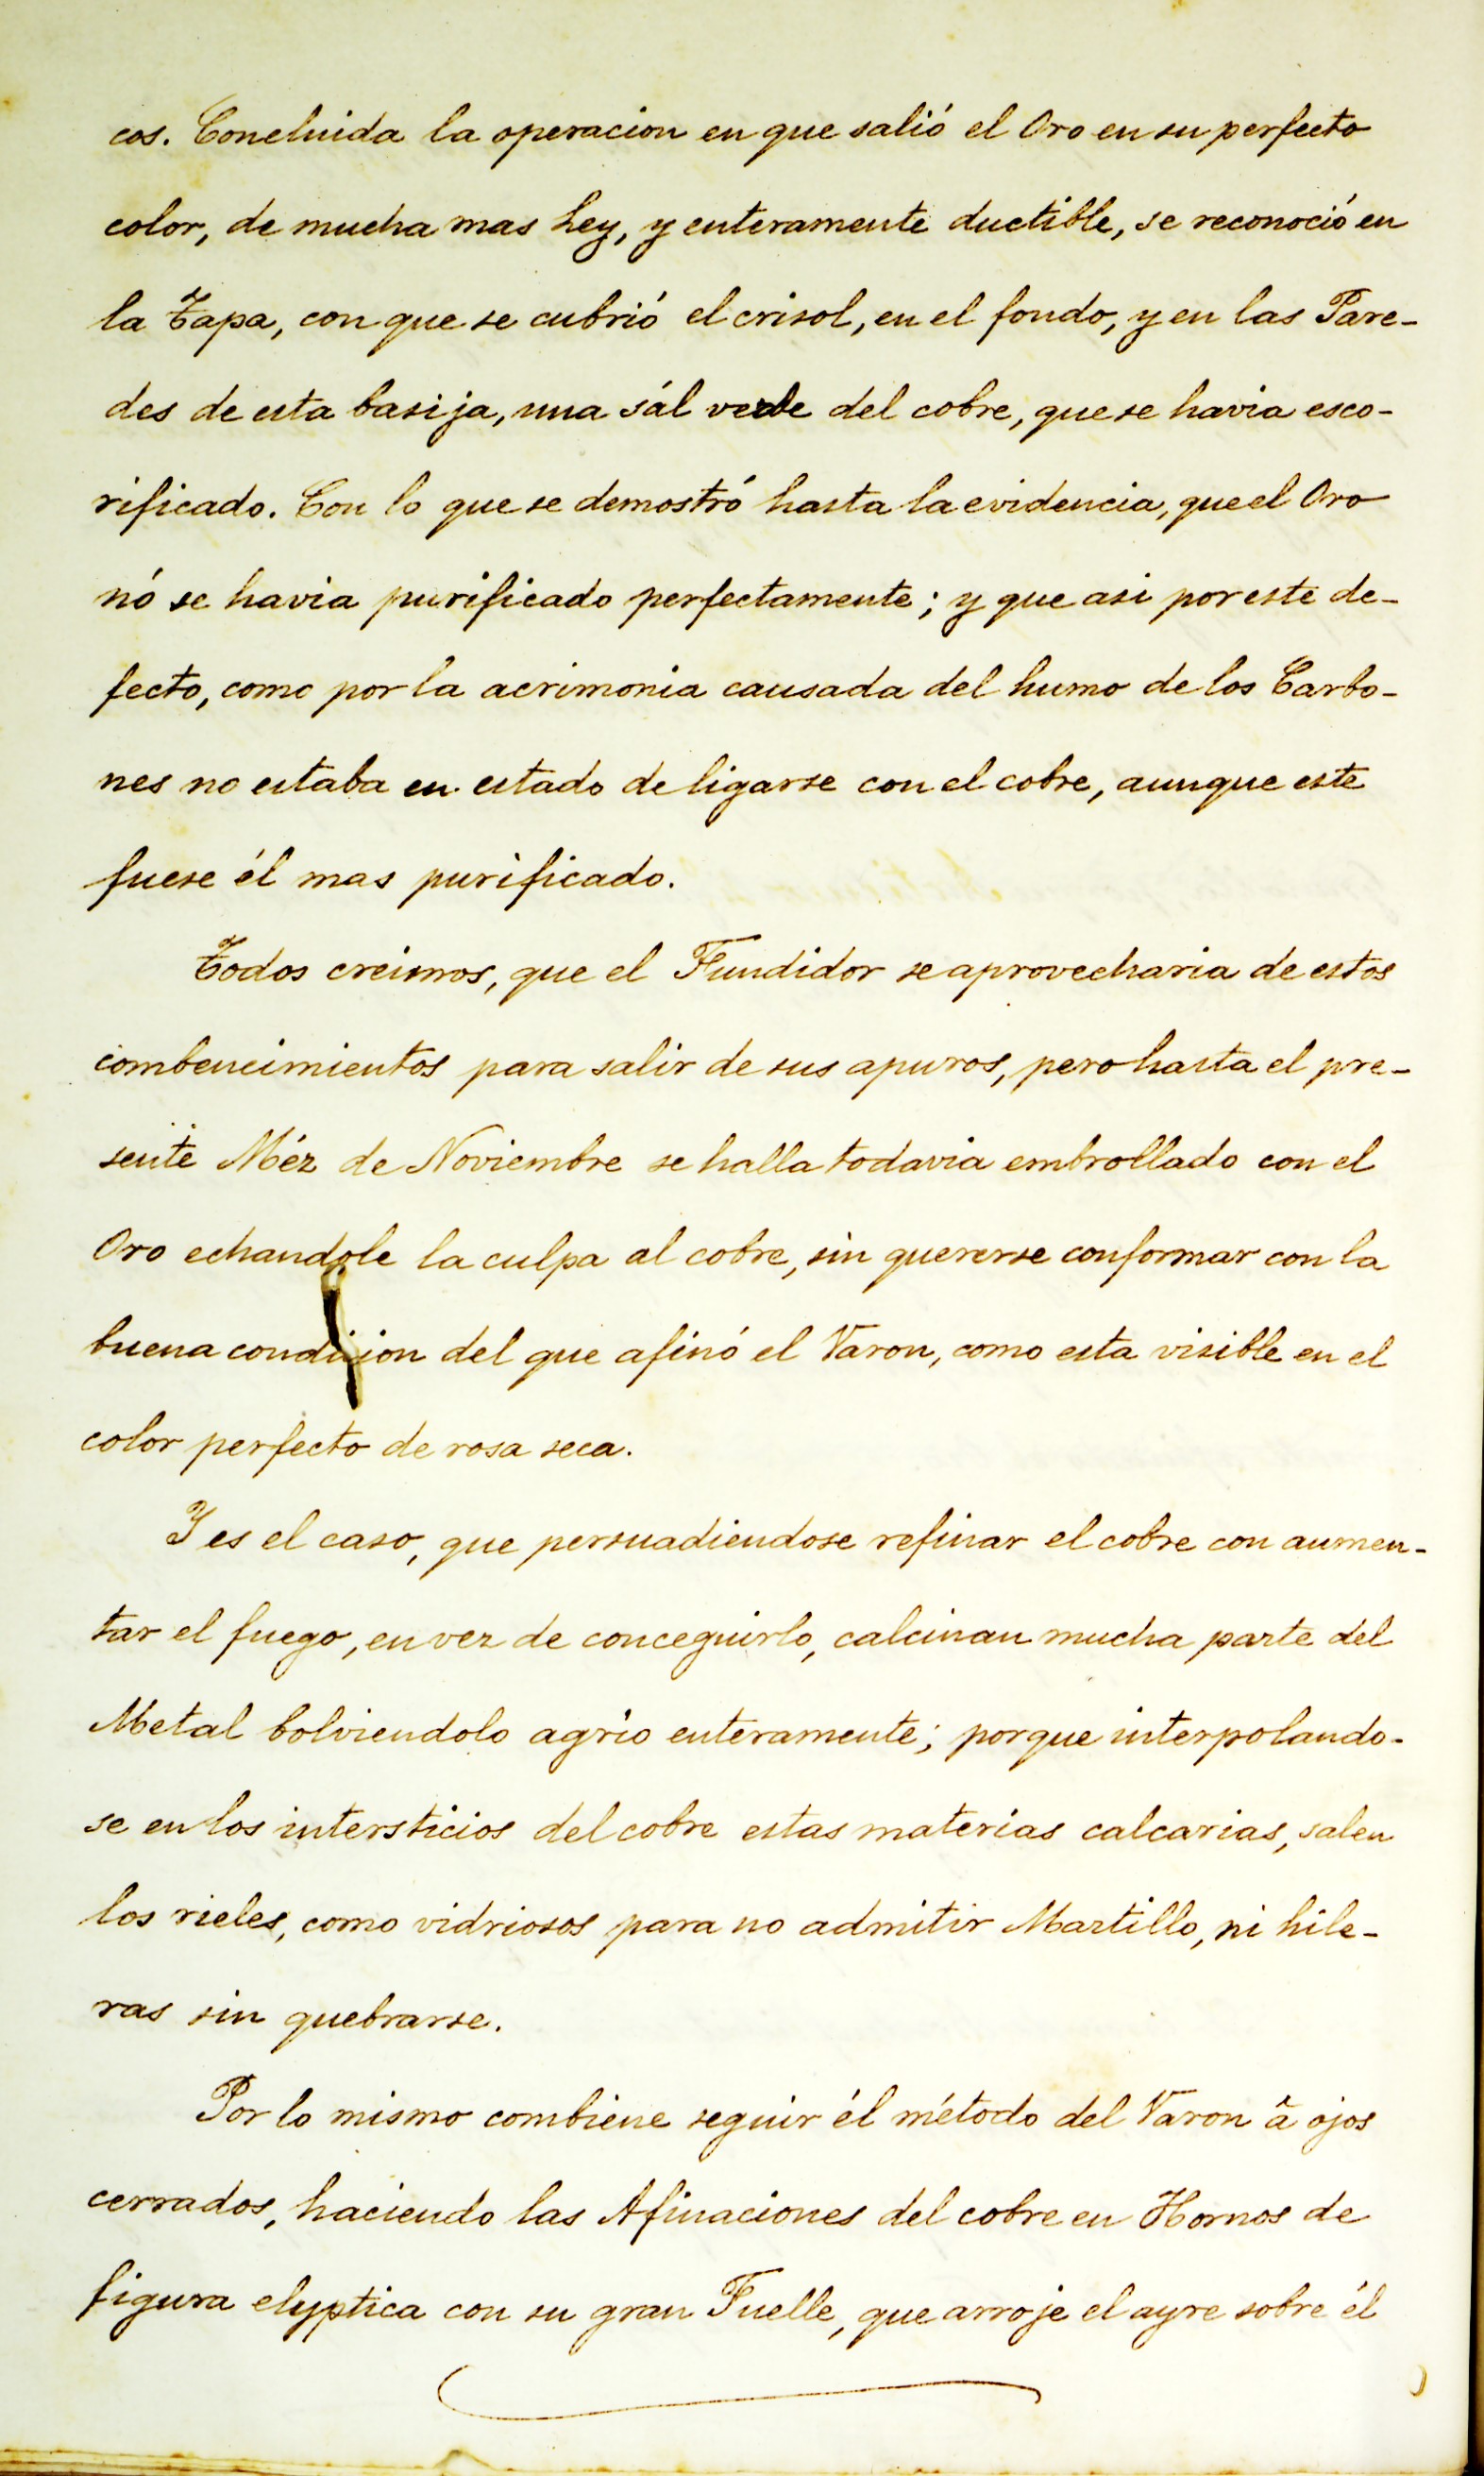 cos. Concluida la operacion en que salió el Oro en su perfecto
color, de mucha mas Ley, y enteramente ductible, se reconoció en
la Tapa, con que se cubrió el crisol, en el fondo, y en las Pare-
des de esta basija, una sál verde del cobre, que se havia esco-
rificado. Con lo que se demostró hasta la evidencia, que el Oro
nó se havia purificado perfectamente; y que asi por este de-
fecto, como por la acrimonia causada del humo de los Carbo-
nes no estaba en estado de ligarse con el cobre, aunque este
fuese él mas purificado.
Todos creimos, que el Fundidor se aprovecharia de estos
combencimientos para salir de sus apuros, pero hasta el pre-
sente Méz de Noviembre se halla todavia embrollado con el
Oro echandole la culpa al cobre, sin quererse conformar con la
buena condicion del que afinó el Varon, como esta visible en el
color perfecto de rosa seca.
Y es el caso, que persuadiendose refinar el cobre con aumen-
tar el fuego, en vez de conceguirlo, calcinan mucha parte del
Metal bolviendolo agrio enteramente; porque interpolando-
se en los intersticios del cobre estas materias calcarias, salen
los rieles, como vidriosos para no admitir Martillo, ni hile-
ras sin quebrarse.
Por lo mismo combiene seguir él método del Varon â ojos
cerrados, haciendo las Afinaciones del cobre en Hornos de
figura elyptica con su gran Fuelle, que arroje el ayre sobre él